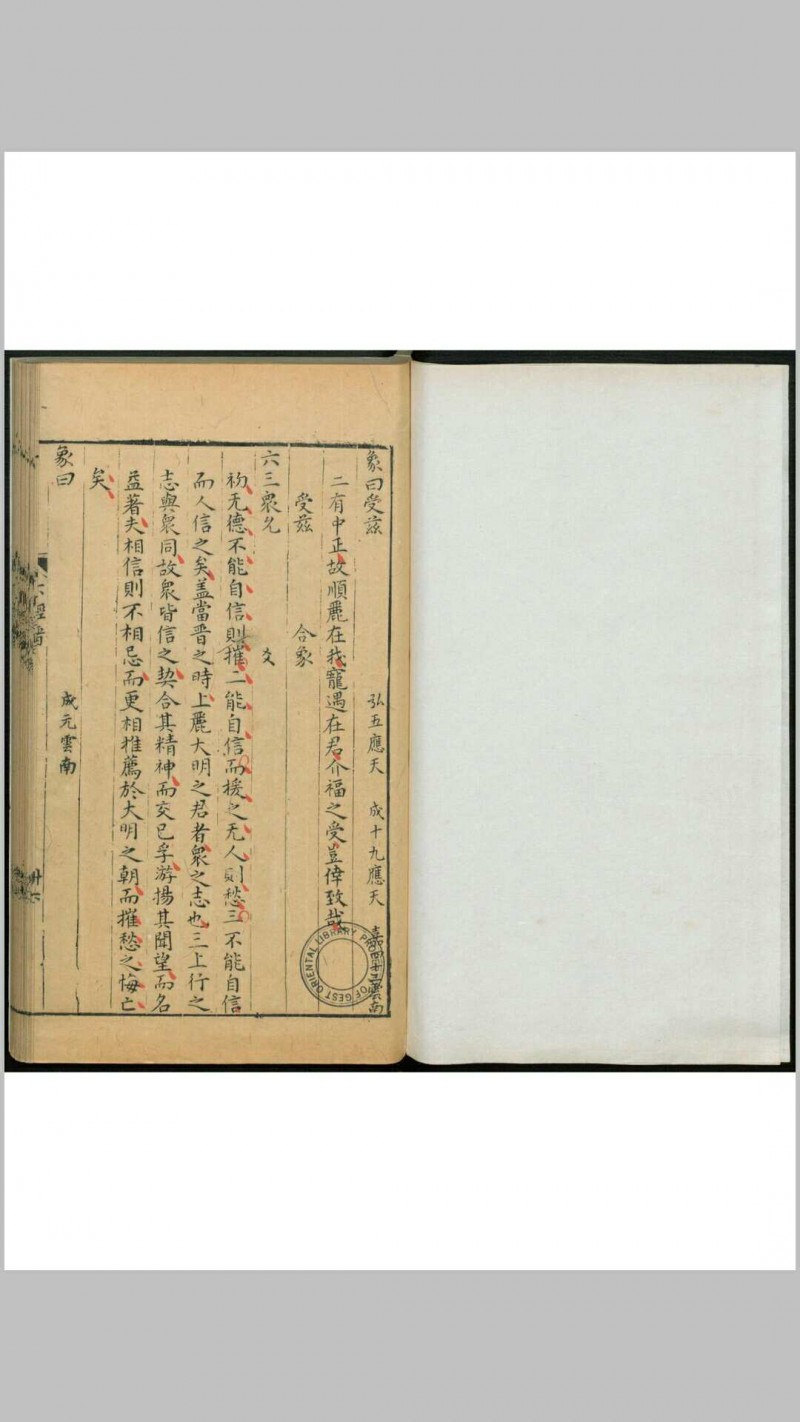 象曰受茲 弘五應天 成十九應天 嘉四十三雲南
二有中正故順麗在我寵遇在君介福之受豈倖致哉
受茲 合象
六三衆允 爻
初无德不能自信則摧二能自信而援之无人則愁三不能自信
而人信之矣盖當晋之時上麗大明之君者衆之志也三上行之
志與衆同故衆皆信之契合其精神而交已孚游揚其聞望而名
益著夫相信則不相忌而更相推薦於大明之朝而摧愁之悔亡
矣
象曰 成元雲南
卅六
GEST ORIENTAL LIBRARY